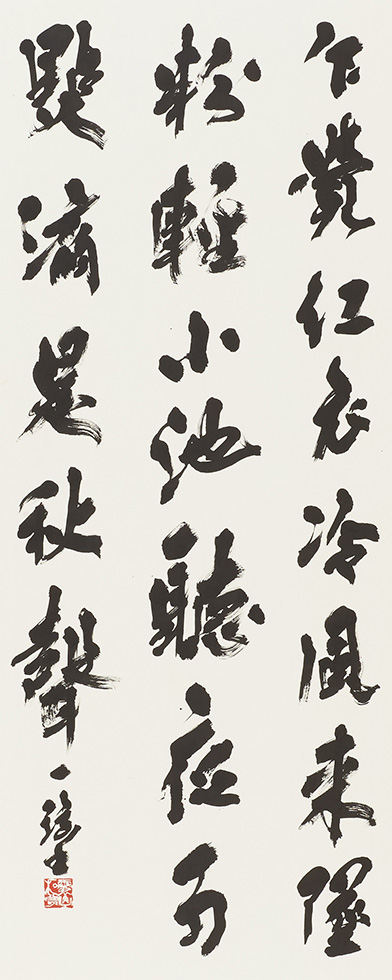 乍覺紅衣冷風來墮
粉輕小池聽夜雨
點滴是秋聲